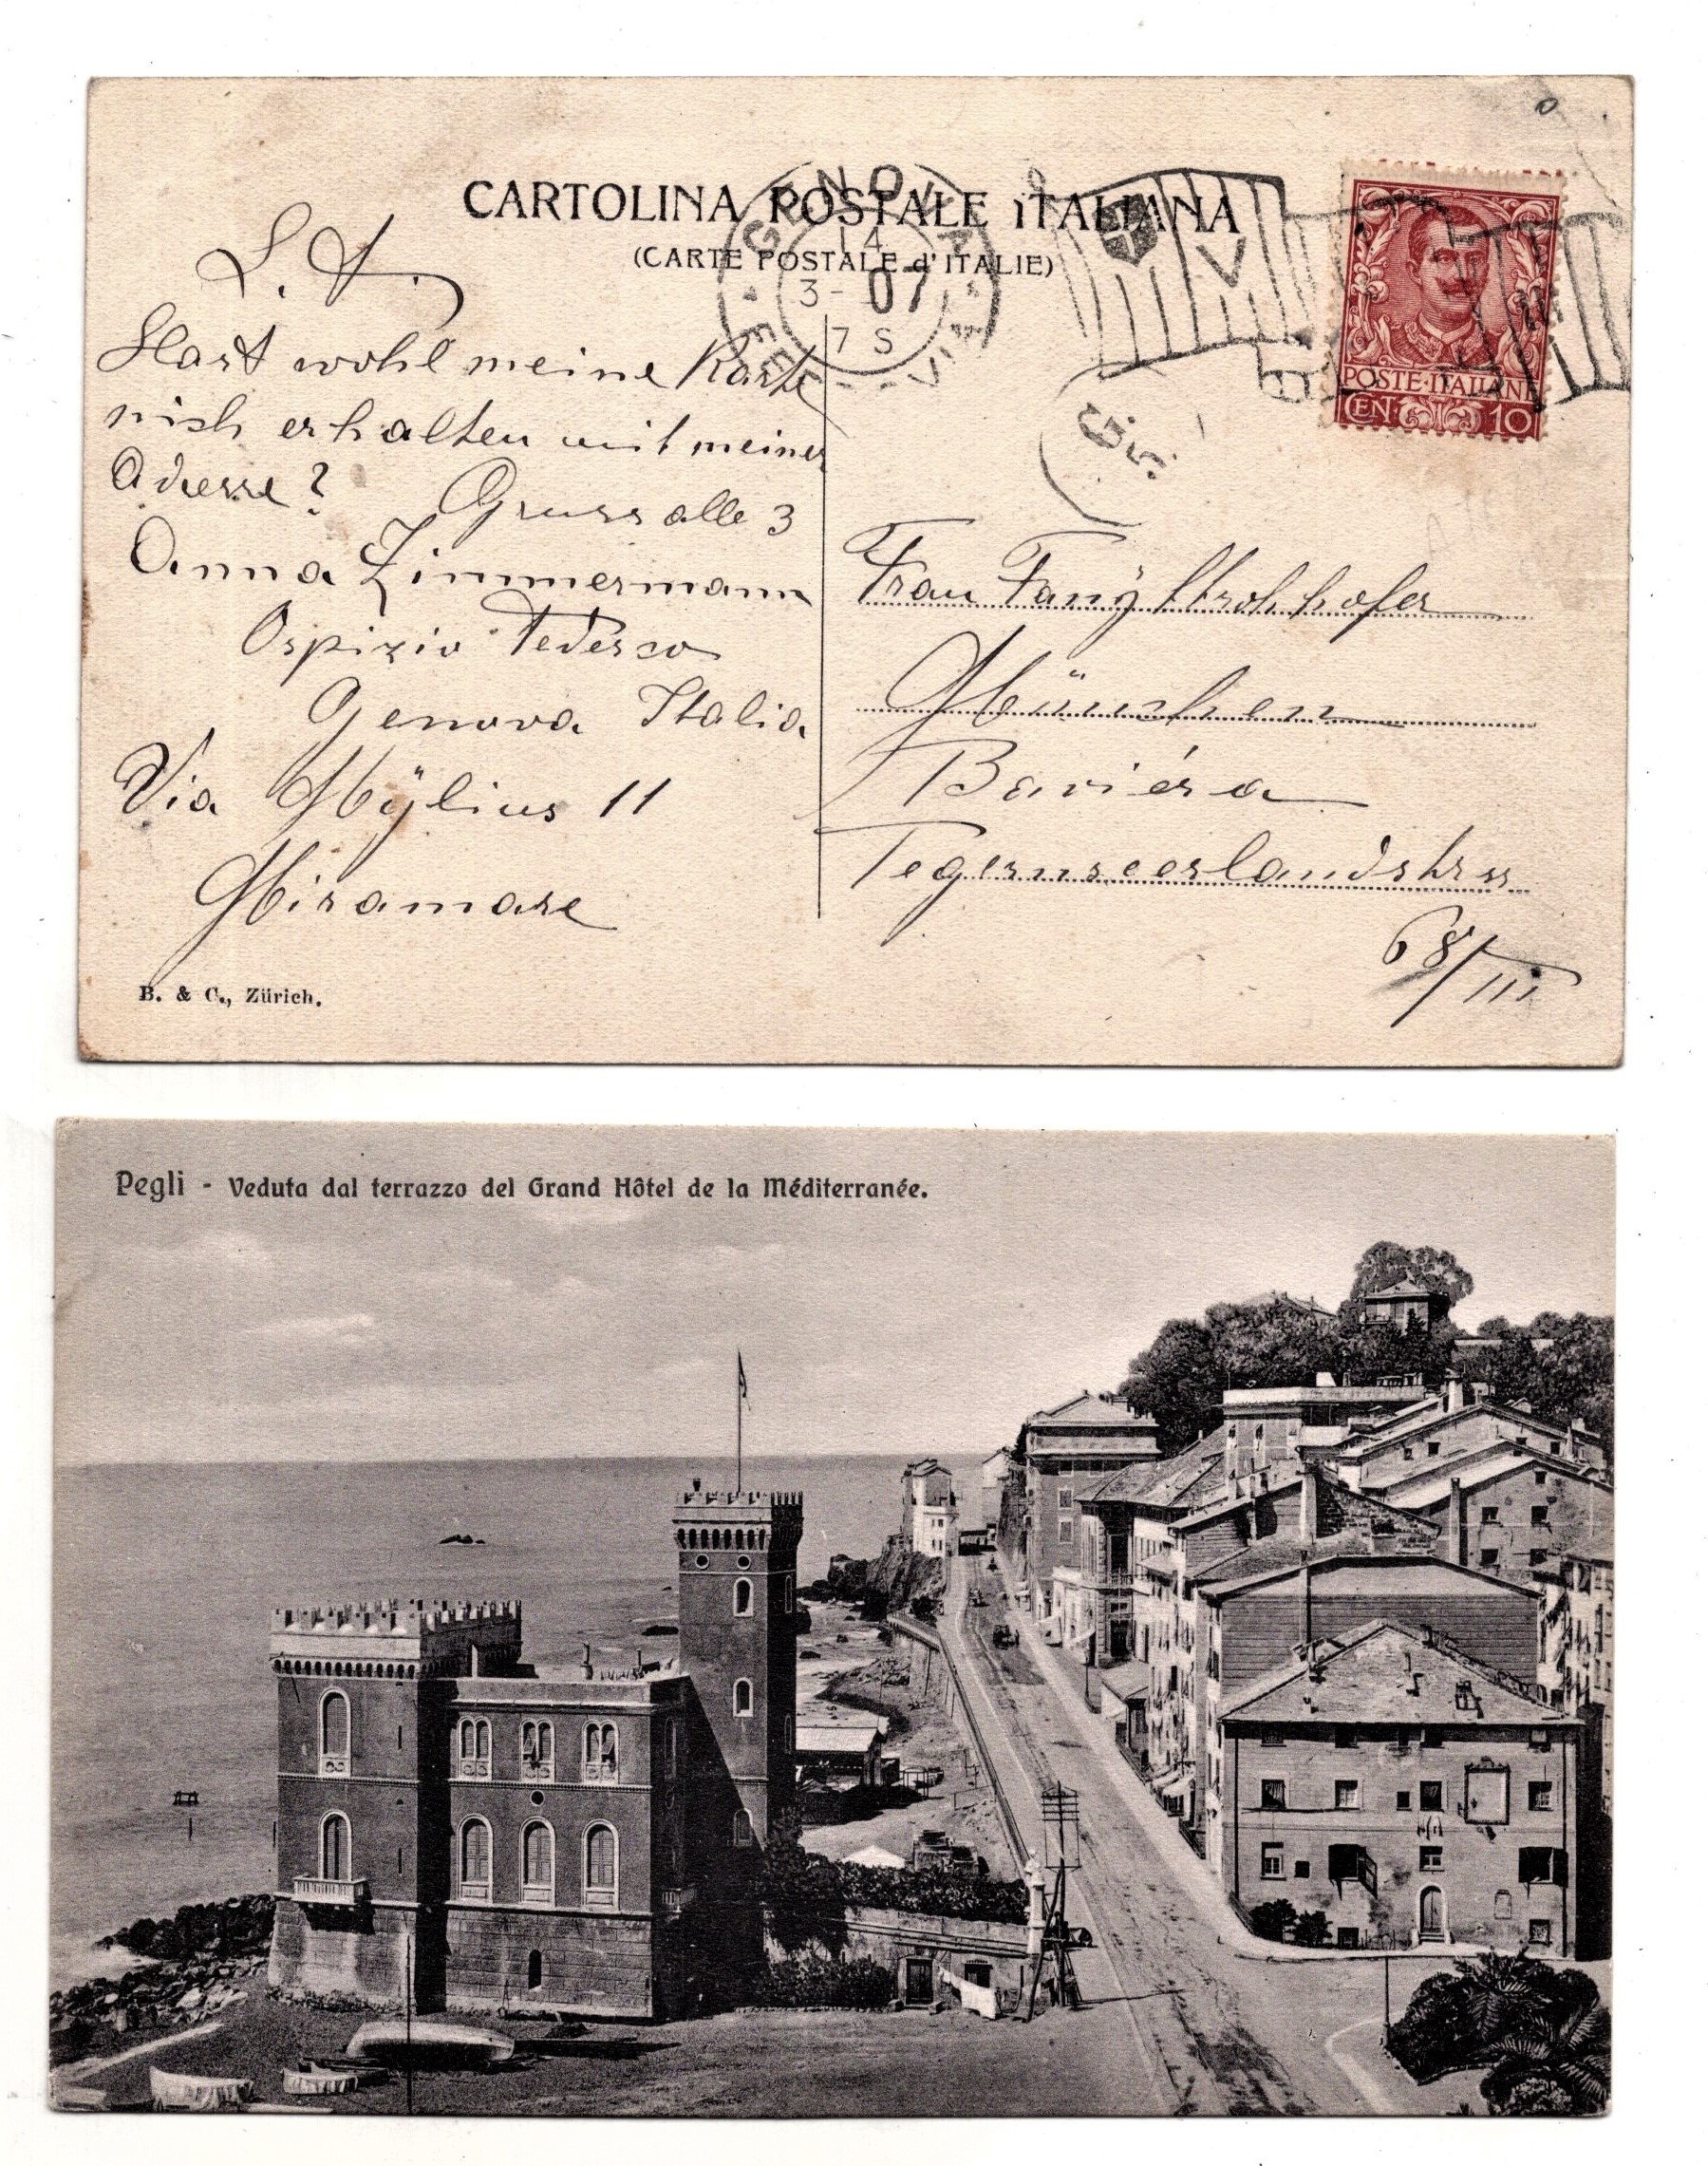 CARTOLINA POSTALE ITALIANA
(CARTE POSTALE d'ITALIE)
GENOVA
14
3- 07
7 S
V
POSTE·ITALIANE
CEN 10
L. F.
Hast wohl meine Karte
nich erhalten mit meiner
Adresse? Gruss alle 3
Anna Zimmermann
Ospizio Tedesco
Genova Italia
Via Mÿlius 11
Miramare
B. & C., Zürich.
Frau Fanÿ Strohhofer
München
Baviéra
Tegernseerlandstrss
68/III
Pegli - Veduta dal terrazzo del Grand Hôtel de la Méditerranée.